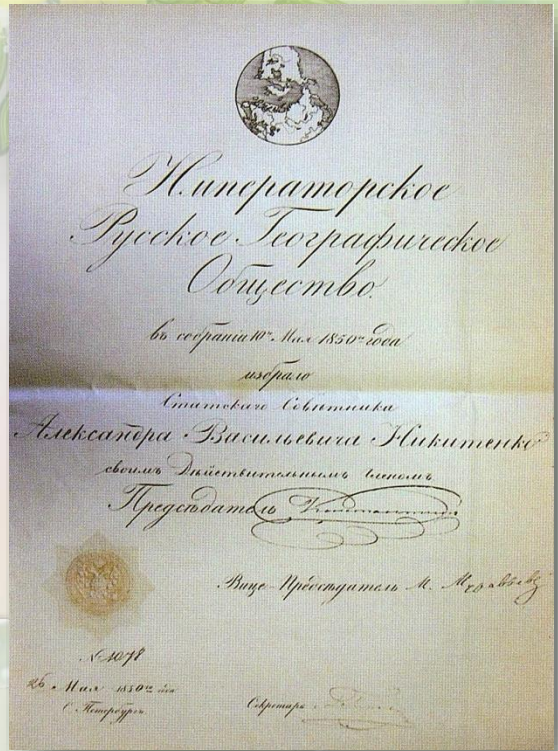 Императорское
Русское Географическое
Общество.
въ собраніи 10го Мая 1850го года
избрало
Статскаго Совѣтника
Александра Васильевича Никитенко
своимъ Дѣйствительнымъ членомъ
Предсѣдатель Константинъ
Вице-Предсѣдатель М. Муравьевъ
№ 1078
26 Мая 1850го года
С. Петербургъ.
Секретарь